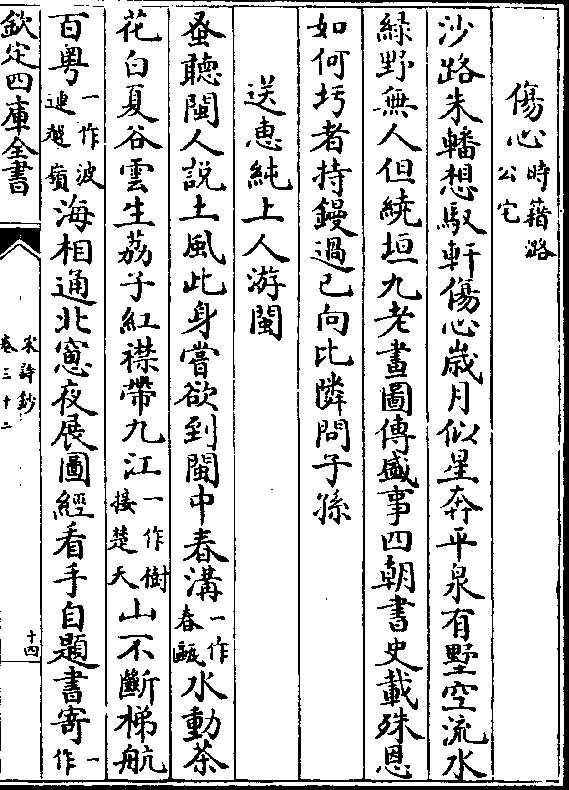 傷心時藉潞公宅
沙路朱轓想馭軒傷心歲月似星奔平泉有墅空流水
緑野無人但繞垣九老畫圖傳盛事四朝書史載殊恩
如何圬者持鏝過已向比隣問子孫
送惠純上人游閩
蚤聽閩人說土風此身嘗欲到閩中春溝一作春甌水動茶
花白夏谷雲生荔子紅襟帶九江一作樹接楚天山不斷梯航
百粤一作波連䰀嶺海相通北窻夜展圖經看手自題書寄一作
欽定四庫全書
宋詩鈔
卷三十二
十四